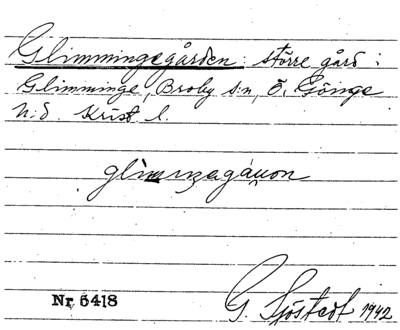 Glimmingegården: större gård i
Glimminge, Broby s:n, Ö. Göinge
h:d. Krist. l.
Nr 5418
G. Sjöstedt 1942